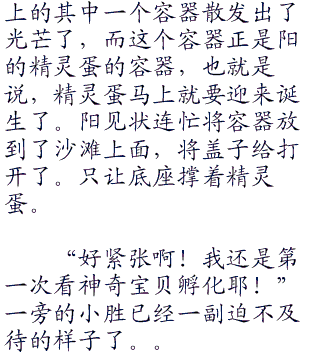 上的其中一个容器散发出了
光芒了，而这个容器正是阳
的精灵蛋的容器，也就是
说，精灵蛋马上就要迎来诞
生了。阳见状连忙将容器放
到了沙滩上面，将盖子给打
开了。只让底座撑着精灵
蛋。
“好紧张啊！我还是第
一次看神奇宝贝孵化耶！”
一旁的小胜已经一副迫不及
待的样子了。。